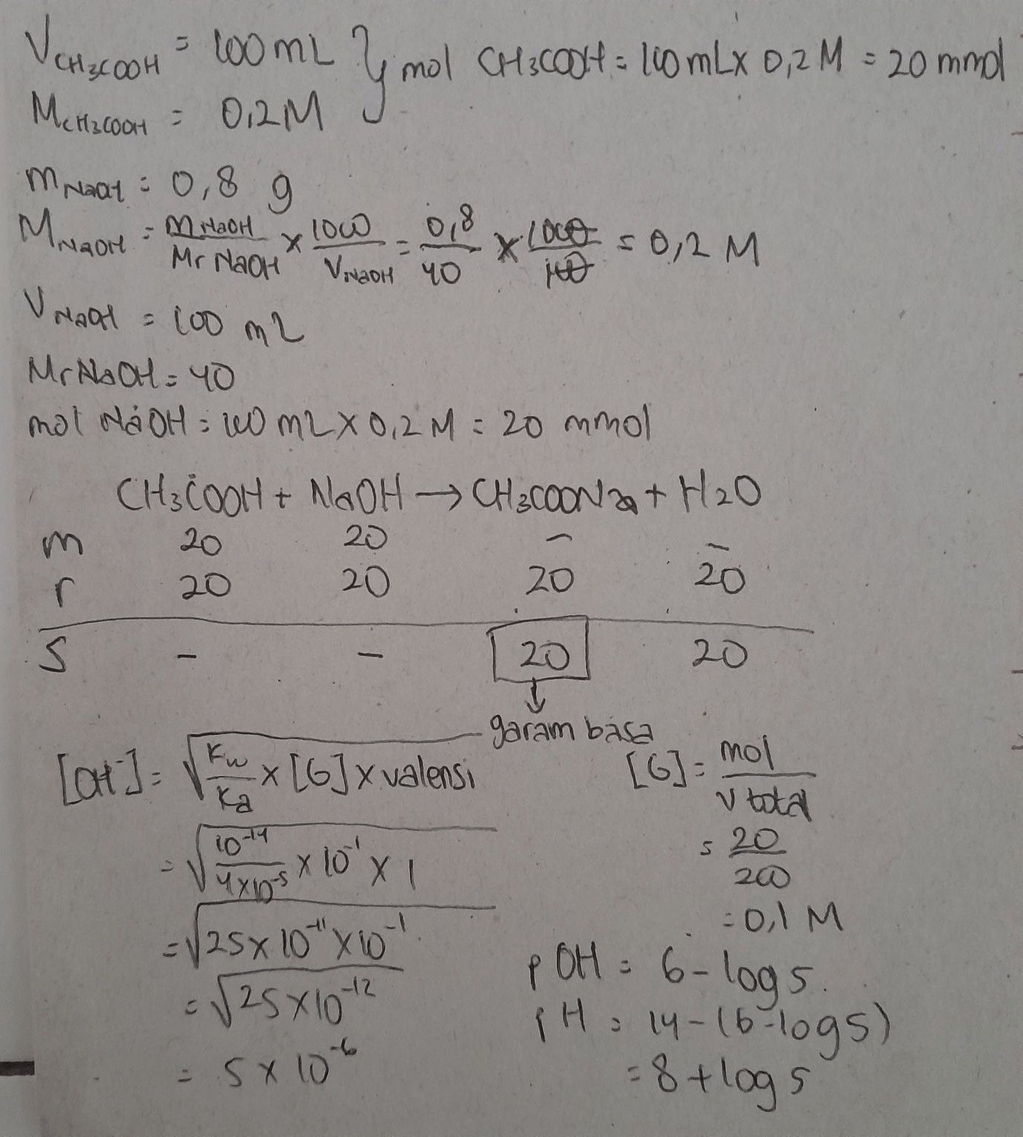 V CH3COOH = 100 mL } mol CH3COOH = 100 mL x 0,2 M = 20 mmol
M CH3COOH = 0,2 M
m NaOH = 0,8 g
M NaOH = m NaOH / Mr NaOH x 1000 / V NaOH = 0,8 / 40 x 1000 / 100 = 0,2 M
V NaOH = 100 mL
Mr NaOH = 40
mol NaOH = 100 mL x 0,2 M = 20 mmol
CH3COOH + NaOH → CH3COONa + H2O
m 20 20 - -
r 20 20 20 20
s - - 20 20
garam basa
[OH-] = √(Kw / Ka x [G] x valensi)
= √(10^-14 / 4x10^-5 x 10^-1 x 1)
= √(25 x 10^-11 x 10^-1)
= √(25 x 10^-12)
= 5 x 10^-6
[G] = mol / V total
= 20 / 200
= 0,1 M
pOH = 6 - log 5.
pH = 14 - (6 - log 5)
= 8 + log 5